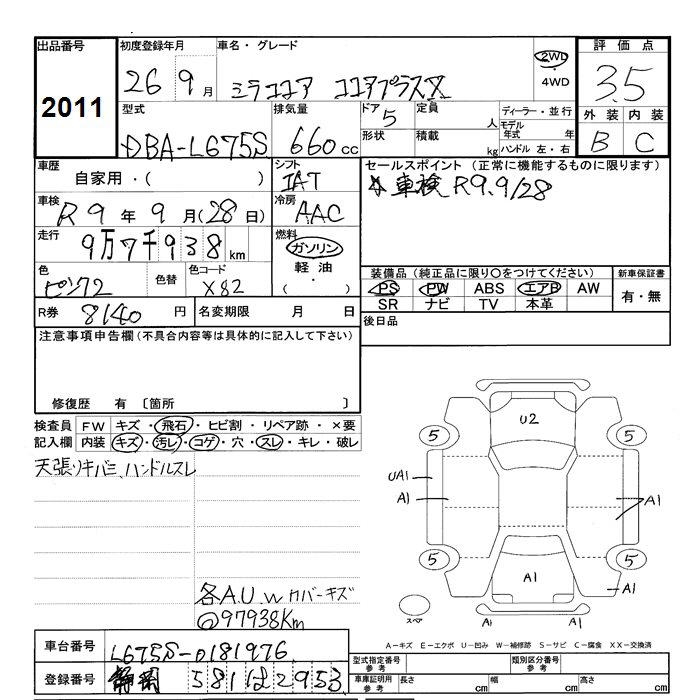 出品番号
2011
初度登録年月
26 9月
車名・グレード
ミラココア ココアプラスX
2WD
4WD
評価点
3.5
型式
DBA-L675S
排気量
660cc
ドア
5
定員
人
形状
積載
kg
ディーラー・並行
モデル年式
年
ハンドル 左・右
外装 内装
B C
車歴
自家用・( )
シフト
IAT
セールスポイント (正常に機能するものに限ります)
車検 R9.9/28
車検
R9年9月(28日)
冷房
AAC
走行
9万7千938km
燃料
ガソリン
軽油
(・)
色
ピンク2
色替
色コード
X82
装備品(純正品に限り〇をつけてください)
PS PW ABS エアB AW
SR ナビ TV 本革
新車保証書
有・無
R券
8140円
名変期限 月 日
後日品
注意事項申告欄(不具合内容等は具体的に記入して下さい)
修復歴 有 〔箇所 〕
検査員 FW キズ・飛石・ヒビ割・リペア跡・×要
記入欄 内装 キズ・汚レ・コゲ・穴・スレ・キレ・破レ
天張リキバミ、ハンドルスレ
U2
5 5
UA1
A1 A1
5 5
A1 A1
A1
スペア
各A.U.W カバーキズ
@97938Km
A-キズ E-エクボ U-凹み W-補修跡 S-サビ C-腐食 XX-交換済
車台番号
L675S-0181976
登録番号
静岡 581 は 2953
型式指定番号
参考
類別区分番号
参考
車庫証明用
参考
長さ cm
幅 cm
高さ cm